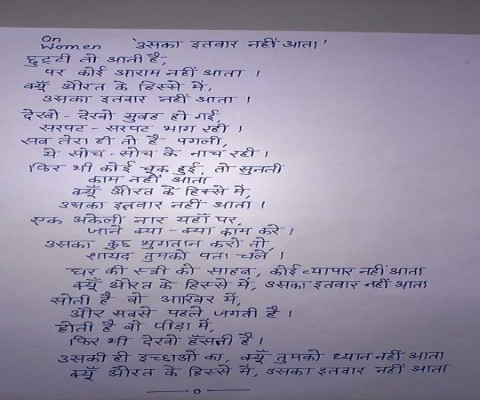 On
Women 'उसका इतवार नहीं आता'
छुट्टी तो आती है,
पर कोई आराम नहीं आता ।
क्यूँ औरत के हिस्से में,
उसका इतवार नहीं आता ।
देखो - देखो सुबह हो गई,
सरपट - सरपट भाग रही ।
सब तेरा ही तो है पगली,
ये सोच - सोच के नाच रही ।
फिर भी कोई चूक हुई, तो सुनती
काम नहीं आता
क्यूँ औरत के हिस्से में,
उसका इतवार नहीं आता ।
एक अकेली नार यहाँ पर,
जाने क्या - क्या काम करे ।
उसका कुछ भुगतान करो तो,
शायद तुमको पता चले ।
घर की स्त्री को साहब, कोई व्यापार नहीं आता
क्यूँ औरत के हिस्से में, उसका इतवार नहीं आता
सोती है वो आखिर में,
और सबसे पहले जगती है ।
होती है वो पीड़ा में,
फिर भी देखो हँसती है ।
उसकी ही इच्छाओं का, क्यूँ तुमको ध्यान नहीं आता
क्यूँ औरत के हिस्से में, उसका इतवार नहीं आता